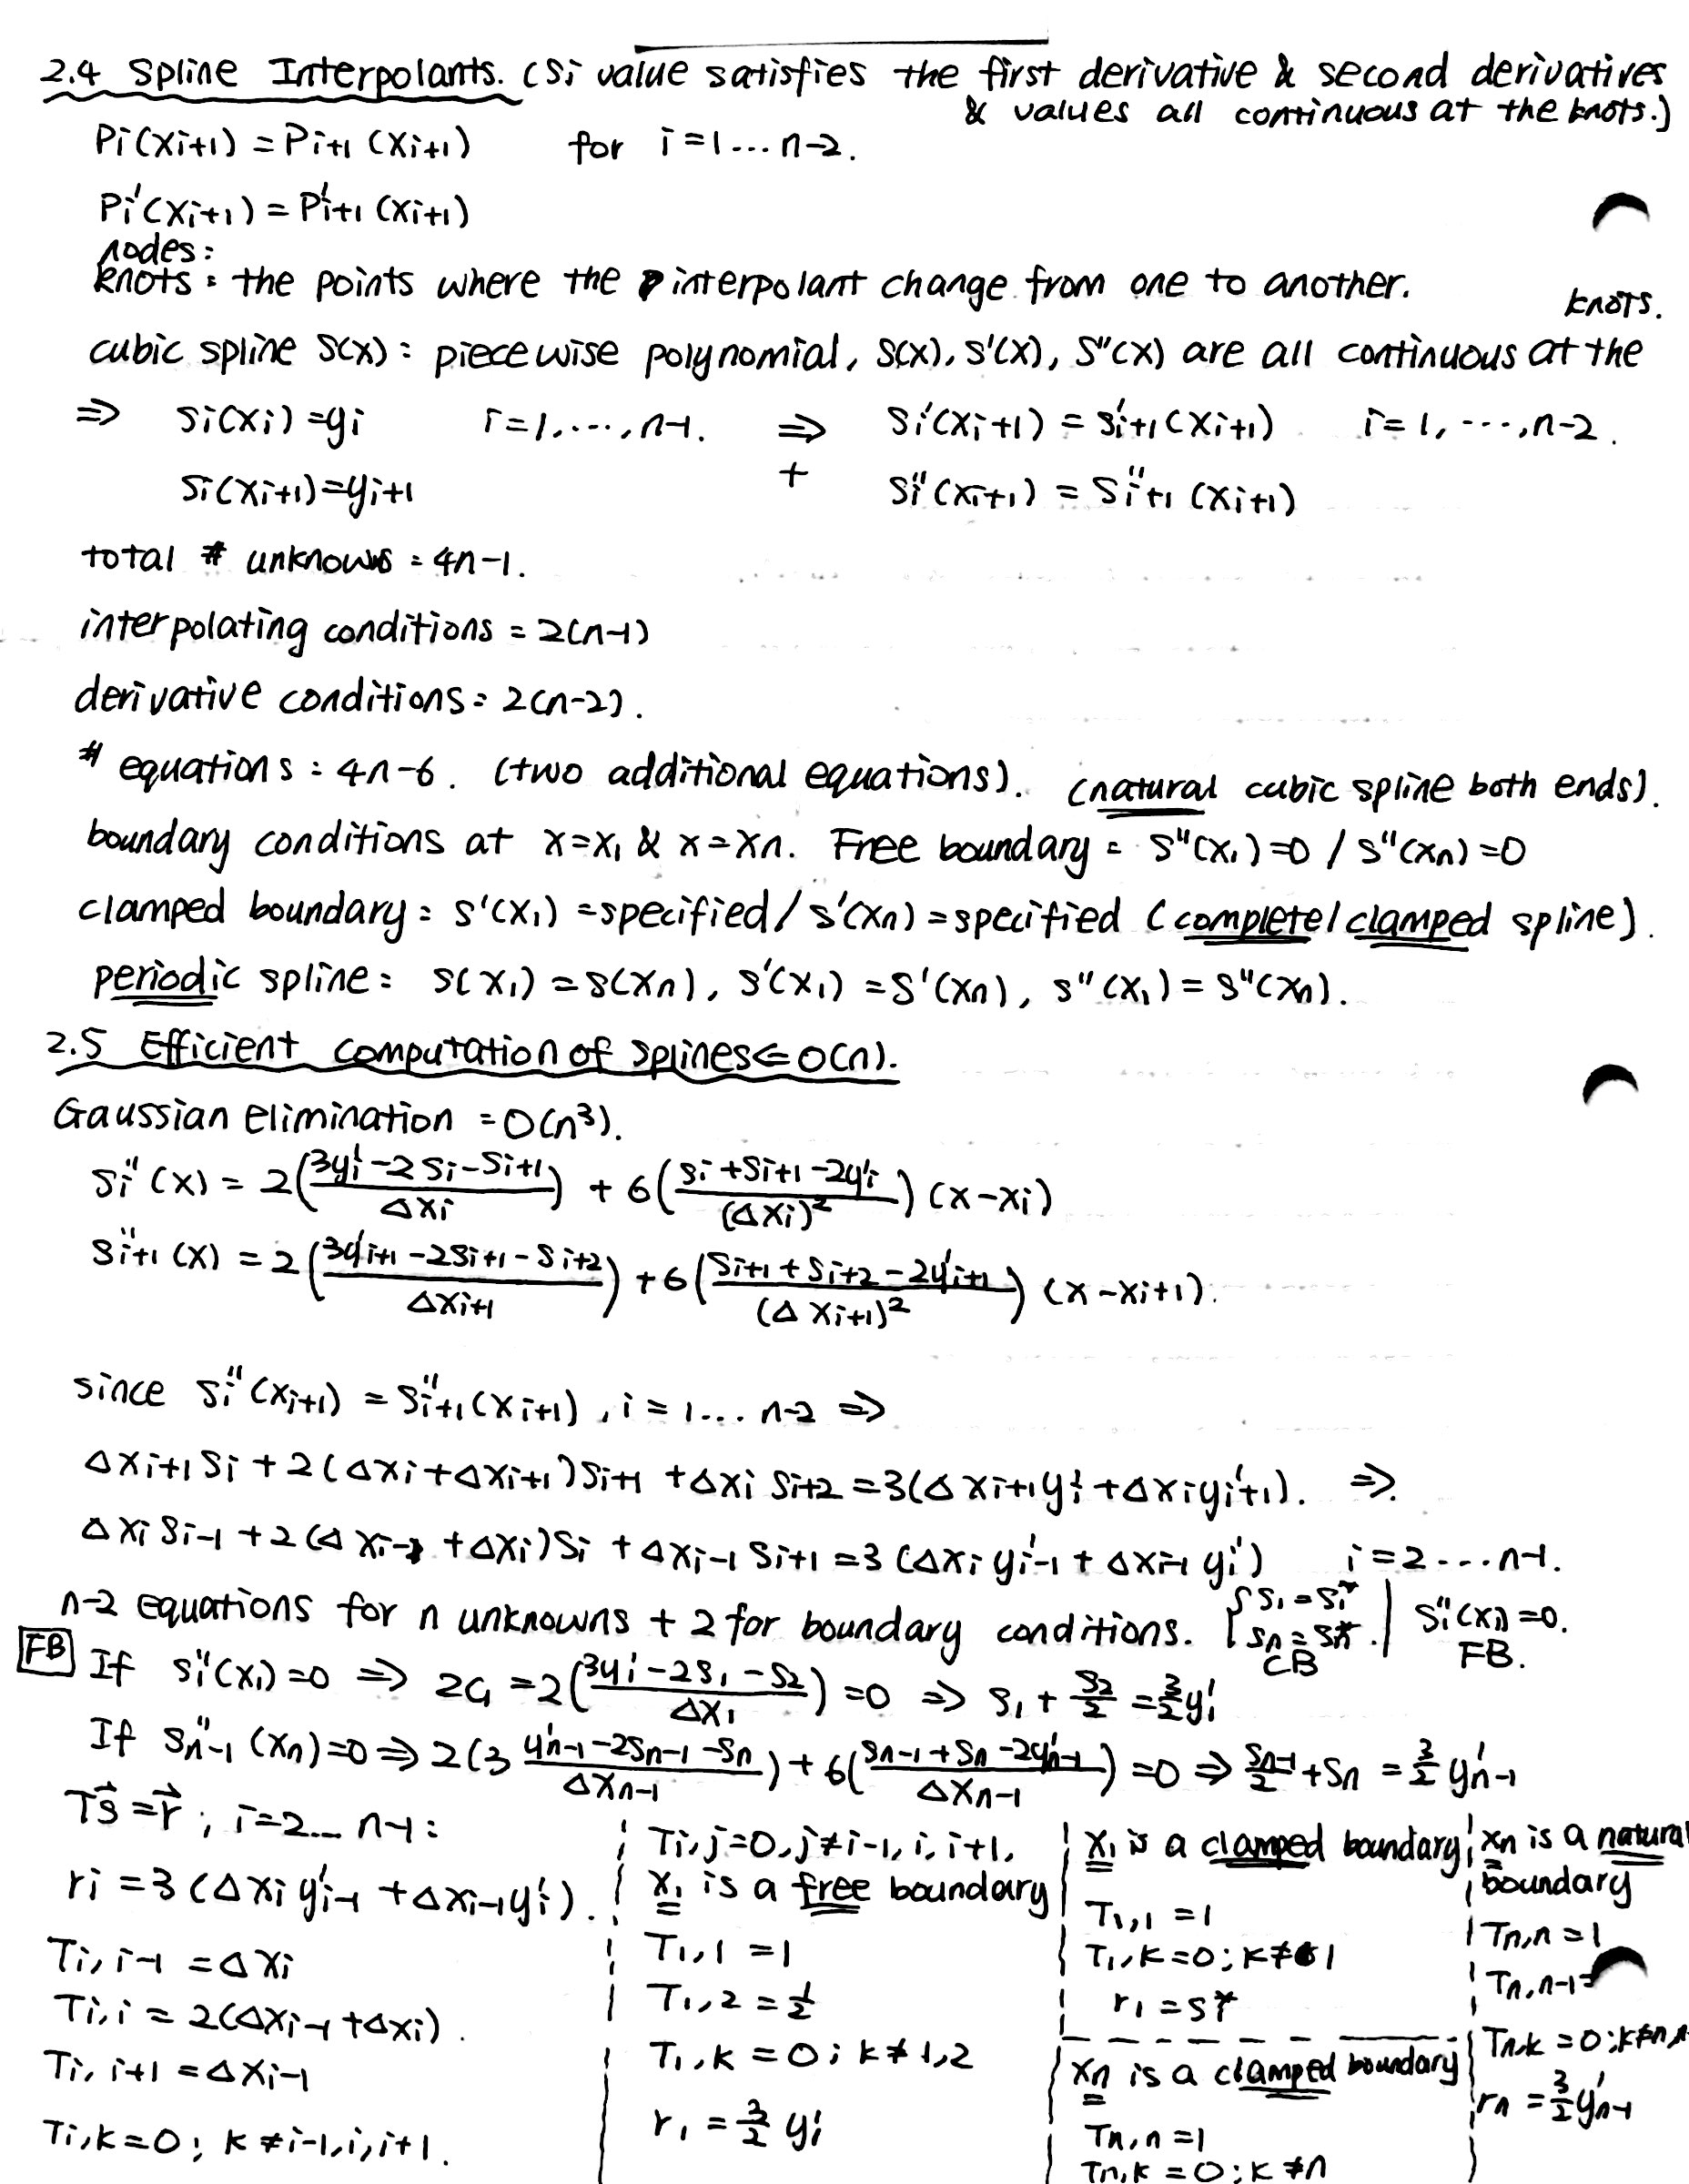 2.4 Spline Interpolants. (Si value satisfies the first derivative & second derivatives
& values all continuous at the knots.)
Pi(Xi+1) = Pi+1 (Xi+1) for i=1...n-2.
Pi'(Xi+1) = P'i+1 (Xi+1)
nodes:
knots: the points where the interpolant change from one to another.
knots.
cubic spline S(x): piecewise polynomial, S(x), S'(x), S''(x) are all continuous at the
⇒ Si(Xi) = yi i=1,...,n-1. ⇒ Si'(Xi+1) = S'i+1(Xi+1) i=1,---,n-2.
Si(Xi+1)=yi+1 + Si''(Xi+1) = S''i+1 (Xi+1)
total # unknowns = 4n-1.
interpolating conditions = 2(n-1)
derivative conditions: 2(n-2).
# equations: 4n-6. (two additional equations). (natural cubic spline both ends).
boundary conditions at x=x1 & x=xn. Free boundary = S''(x1)=0 / S''(xn)=0
clamped boundary: S'(X1) = specified / S'(Xn) = specified (complete/clamped spline).
periodic spline: S(X1) = S(Xn), S'(X1) = S'(Xn), S''(X1) = S''(Xn).
2.5 Efficient computation of splines ⇐ O(n).
Gaussian elimination = O(n³).
Si''(x) = 2((3yi'-2Si-Si+1)/ΔXi) + 6((Si+Si+1-2yi')/(ΔXi)²) (x-xi)
S''i+1 (x) = 2((3y'i+1-2Si+1-Si+2)/ΔXi+1) + 6((Si+1+Si+2-2y'i+1)/(ΔXi+1)²) (x-xi+1).
since Si''(xi+1) = S''i+1(xi+1), i=1...n-2 ⇒
ΔXi+1Si + 2(ΔXi+ΔXi+1)Si+1 + ΔXi Si+2 = 3(ΔXi+1yi' + ΔXiy'i+1). ⇒
ΔXi Si-1 + 2(ΔXi-1 + ΔXi)Si + ΔXi-1 Si+1 = 3(ΔXi y'i-1 + ΔXi-1 yi') i=2...n-1.
n-2 equations for n unknowns + 2 for boundary conditions. { S1=S1* Sn=Sn*. CB | Si''(X1)=0. FB.
FB If Si''(X1)=0 ⇒ 2C1 = 2((3y1'-2S1-S2)/ΔX1) = 0 ⇒ S1 + S2/2 = 3/2 y1'
If S''n-1 (Xn)=0 ⇒ 2(3 (y'n-1-2Sn-1-Sn)/ΔXn-1) + 6((Sn-1+Sn-2y'n-1)/ΔXn-1) = 0 ⇒ Sn-1/2 + Sn = 3/2 y'n-1
Ts⃗ = r⃗; i=2...n-1:
ri = 3(ΔXi y'i-1 + ΔXi-1yi').
Ti,i-1 = ΔXi
Ti,i = 2(ΔXi-1+ΔXi).
Ti,i+1 = ΔXi-1
Ti,k=0; k≠i-1,i,i+1.
Ti,j=0, j≠i-1,i,i+1,
X1 is a free boundary
T1,1 = 1
T1,2 = 1/2
T1,k = 0; k≠1,2
r1 = 3/2 y1'
X1 is a clamped boundary
T1,1 = 1
T1,k=0; k≠1
r1 = S1*
Xn is a clamped boundary
Tn,n = 1
Tn,k = 0; k≠n
Xn is a natural
boundary
Tn,n = 1
Tn,n-1=
Tn,k = 0; k≠n,
rn = 3/2 y'n-1